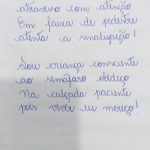 atravesso com atenção
Em faixa de pedestre
atenta a sinalização!
Sou criança consciente
ao semáforo obedeço
Na calçada paciente
pois viver eu mereço!